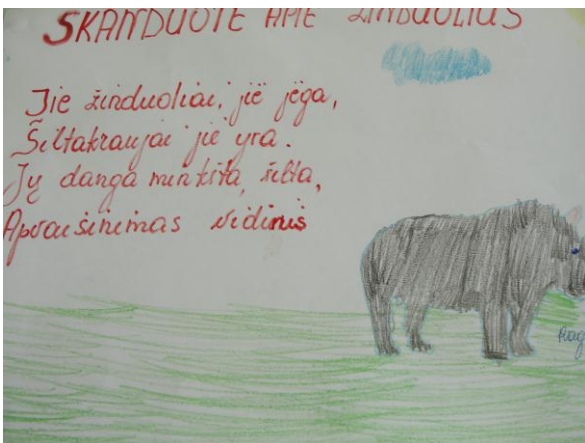 SKANDUOTĖ APIE ŽINDUOLIUS
Jie žinduoliai, jie jėga,
Šiltakraujai jie yra.
Jų danga minkšta, šilta,
Apvaisinimas vidinis